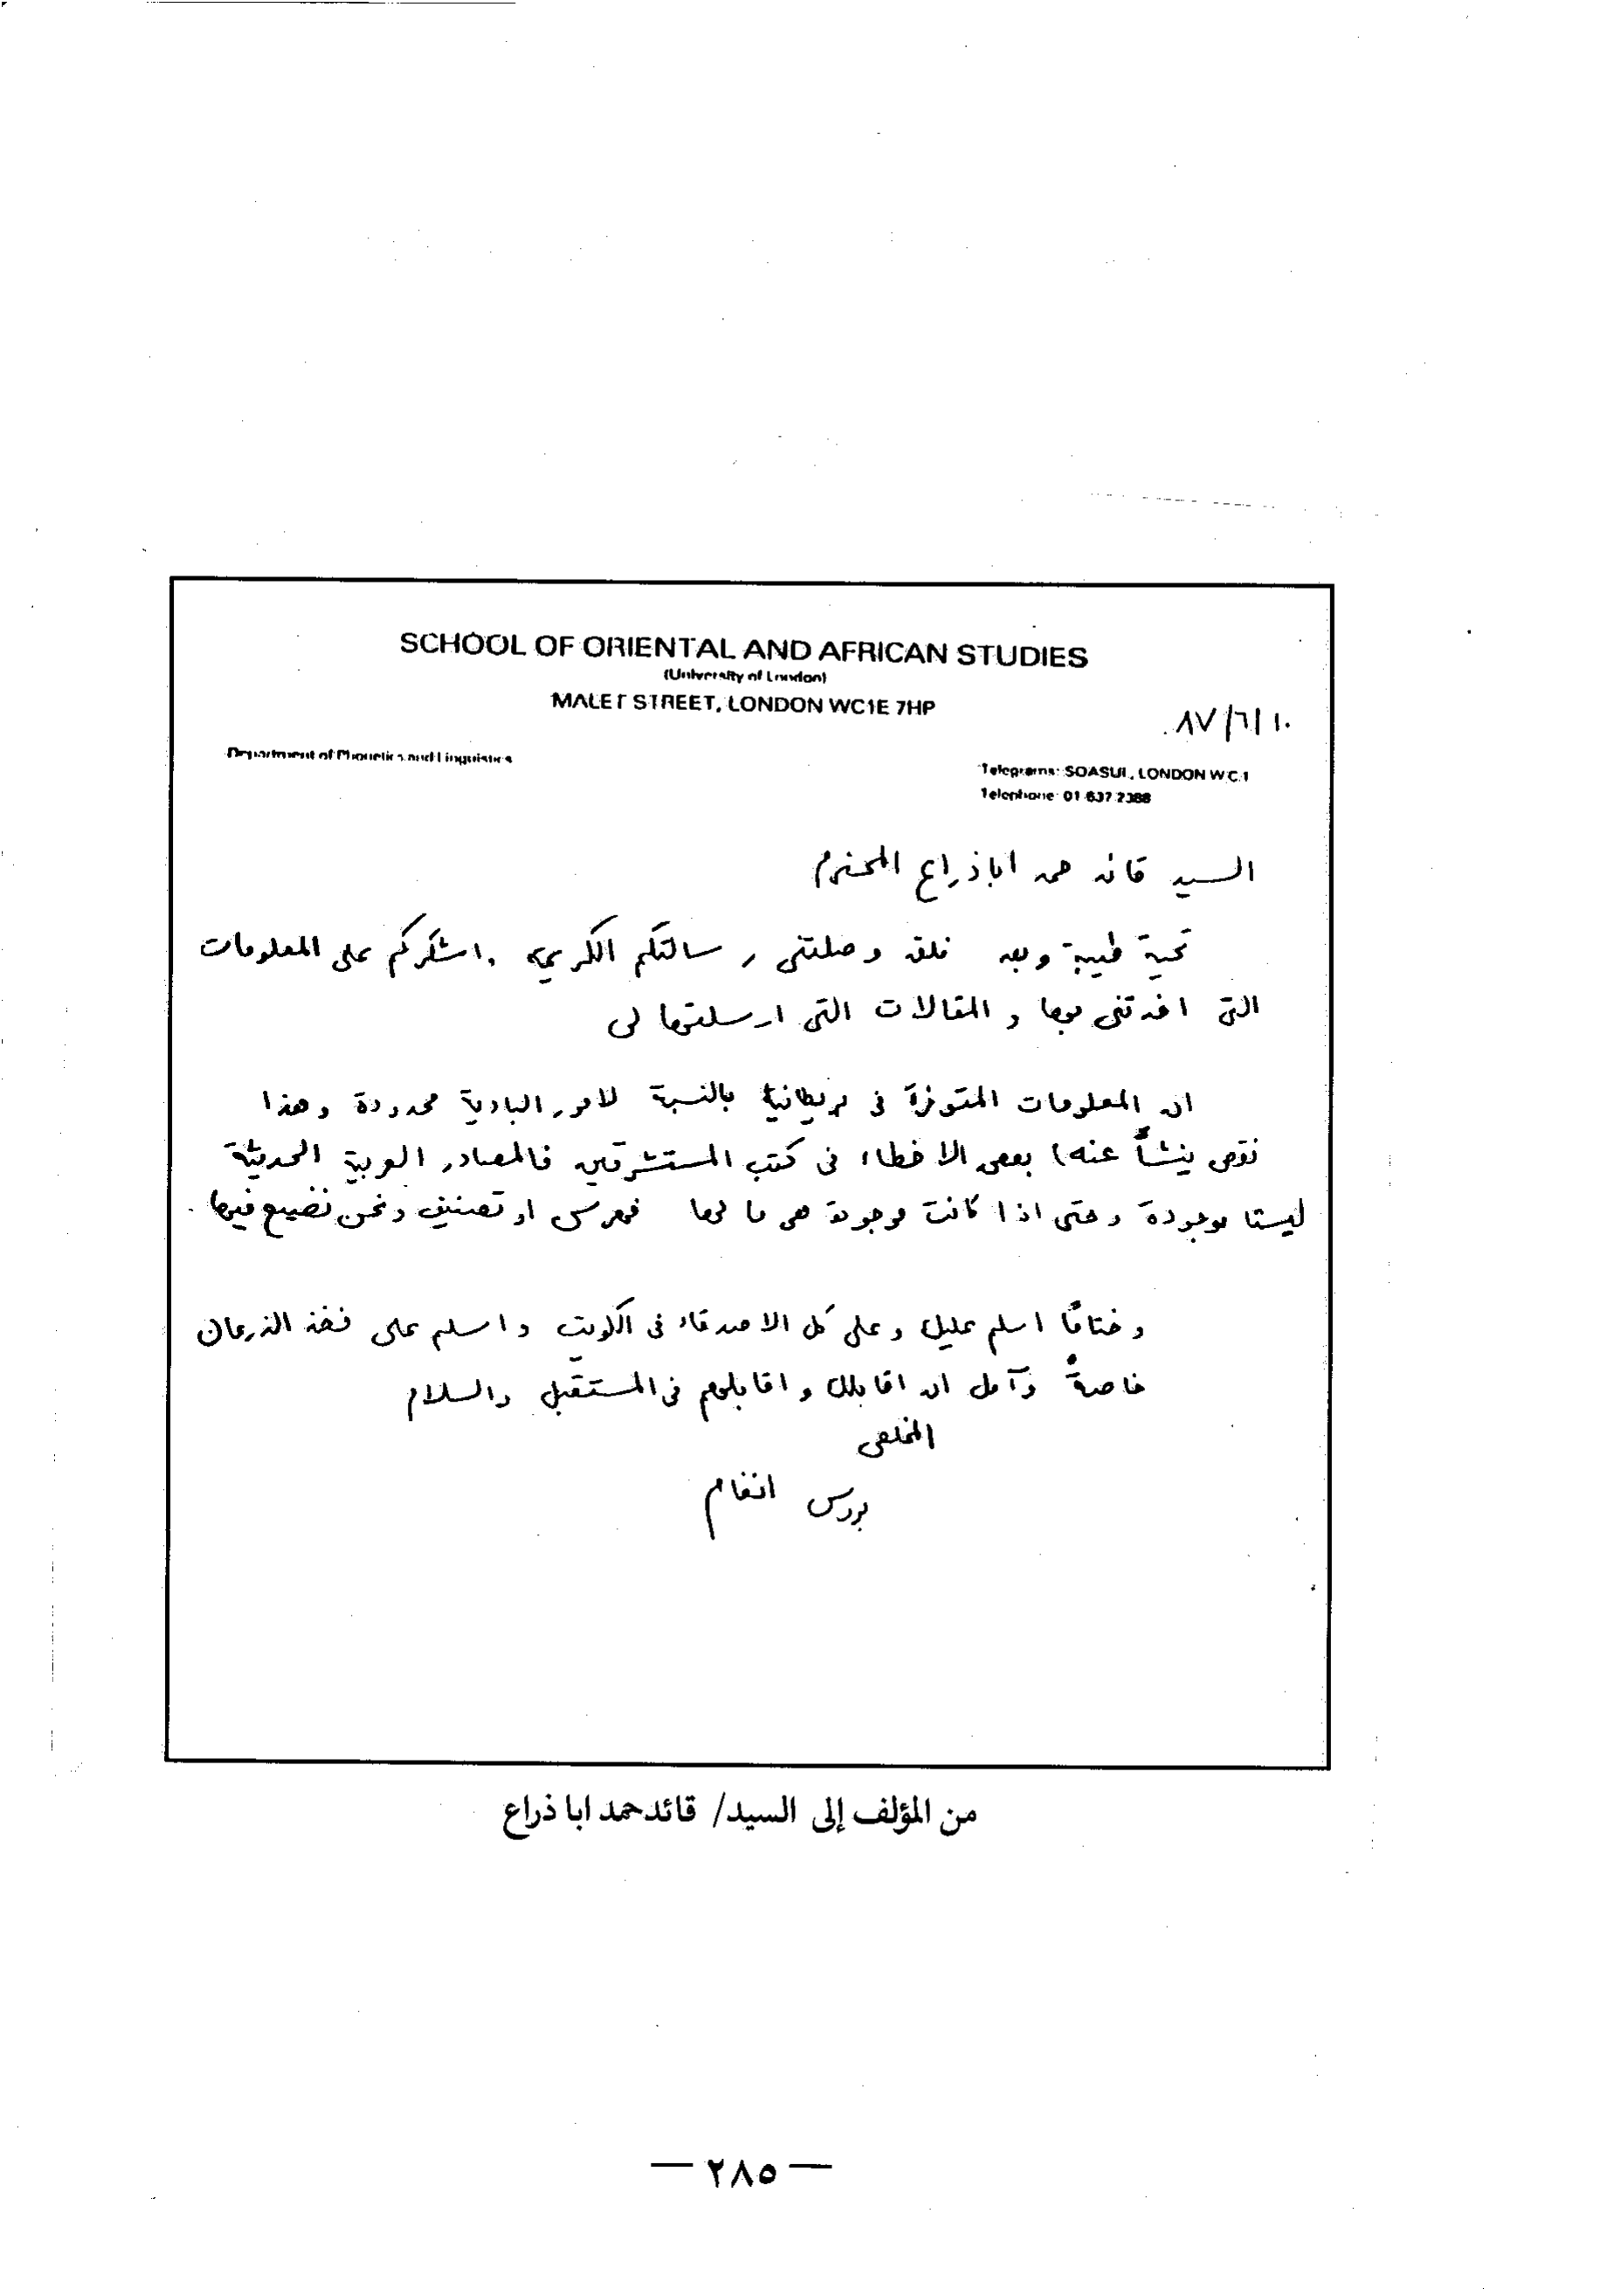 SCHOOL OF ORIENTAL AND AFRICAN STUDIES
(University of London)
MALET STREET, LONDON WC1E 7HP
٨٧/٦/١٠
Department of Phonetics and Linguistics
Telegrams: SOASUL, LONDON W.C.1
Telephone: 01 637 2388
السيد قائد حمد اباذراع المحترم
تحية طيبة وبعد فلقد وصلتني رسالتكم الكريمة واشكركم على المعلومات
التي افدتني بها و المقالات التي ارسلتها لي
ان المعلومات المتوفرة في بريطانيا بالنسبة لامور البادية محدودة وهذا
نقص ينشأ عنه بعض الاخطاء في كتب المستشرقين فالمصادر العربية الحديثة
ليستا موجودة وحتى اذا كانت موجودة هي ما لها فهرس او تصنيف ونحن نضيع فيها.
وختامًا اسلم عليك وعلى كل الاصدقاء في الكويت واسلم على فخذ الذرعان
خاصةً وآمل ان اقابلك و اقابلهم في المستقبل والسلام
المخلص
بروس انغام
من المؤلف إلى السيد/ قائد حمد ابا ذراع
— ٢٨٥ —